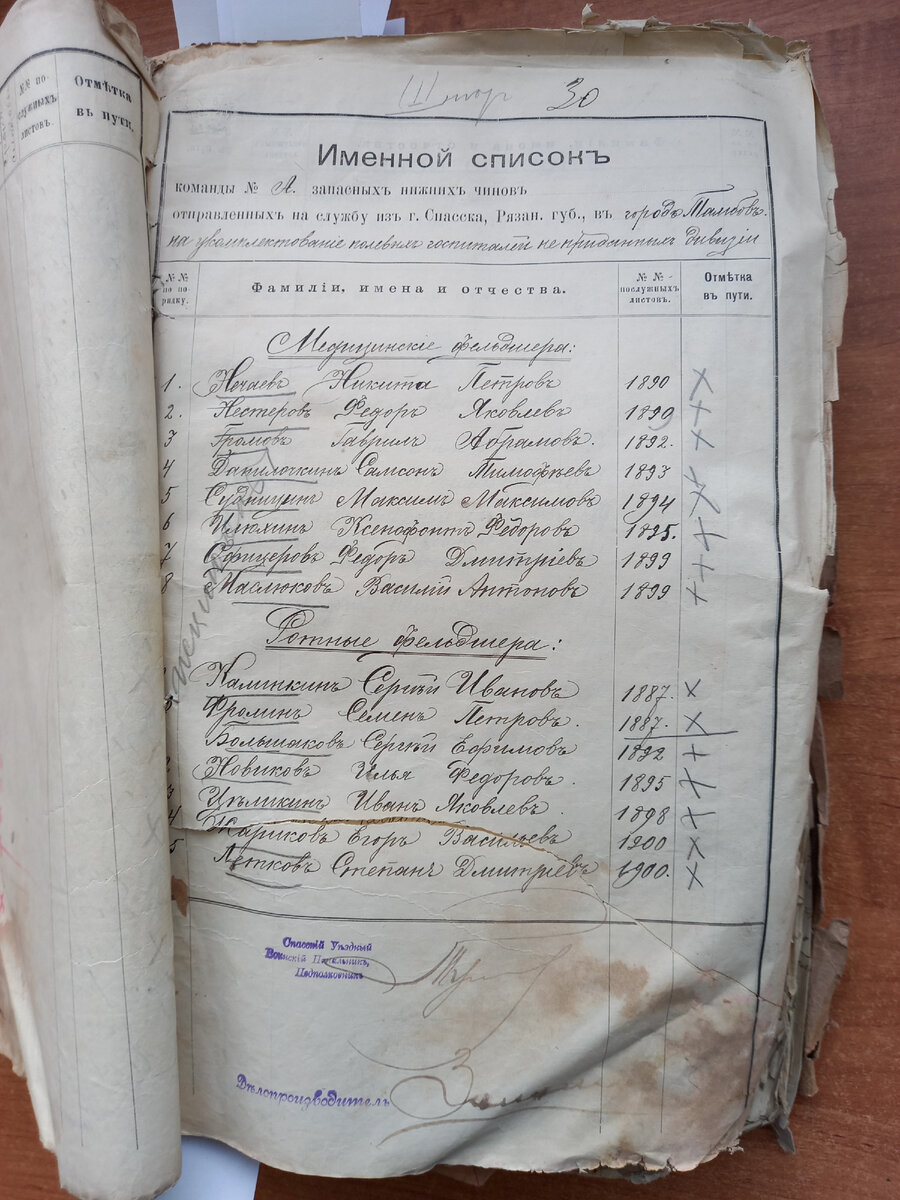 №№ по-
служныхъ
листовъ.
Отмѣтка
въ пути.
30
Именной списокъ
команды № А. запасныхъ нижнихъ чиновъ
отправленныхъ на службу изъ г. Спасска, Рязан. губ., въ городъ Тамбовъ.
на укомплектованіе полевыхъ госпиталей не приданныхъ дивизіи
№№ по порядку. Фамиліи, имена и отчества. №№ послужныхъ листовъ. Отмѣтка въ пути.
Медицинскіе фельдшера:
1. Нечаевъ Никита Петровъ 1890 ×
2. Нестеровъ Федоръ Яковлевъ 1890 +
3 Громовъ Гаврилъ Абрамовъ. 1892. ×
4 Данилочкинъ Самсонъ Тимофѣевъ 1893 +
5 Максимъ Максимовъ 1894 ×
6 Илюхинъ Ксенофонтъ Федоровъ 1895. +
7 Офицеровъ Федоръ Дмитріевъ 1899 +
8 Маслюковъ Василій Антоновъ 1899 +
Ротные фельдшера:
Калинкинъ Сергѣй Ивановъ 1887. ×
Фролинъ Семенъ Петровъ. 1887. ×
Большаковъ Сергѣй Ефимовъ 1892 +
2 Новиковъ Илья Федоровъ. 1895 ×
3 Цѣликинъ Иванъ Яковлевъ 1898 +
4 Жариковъ Егоръ Васильевъ 1900 ×
5 Летковъ Степанъ Дмитріевъ 1900. ×
Спасскій Уѣздный
Воинскій Начальникъ,
Подполковникъ
Дѣлопроизводитель